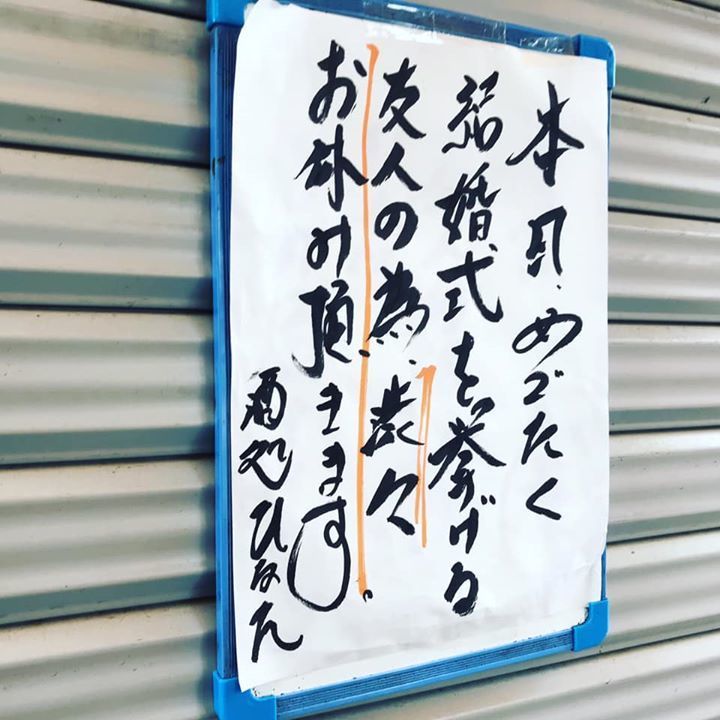 本日、めでたく
結婚式を挙げる
友人の為、渋々
お休み頂きます。
酒処ひなた